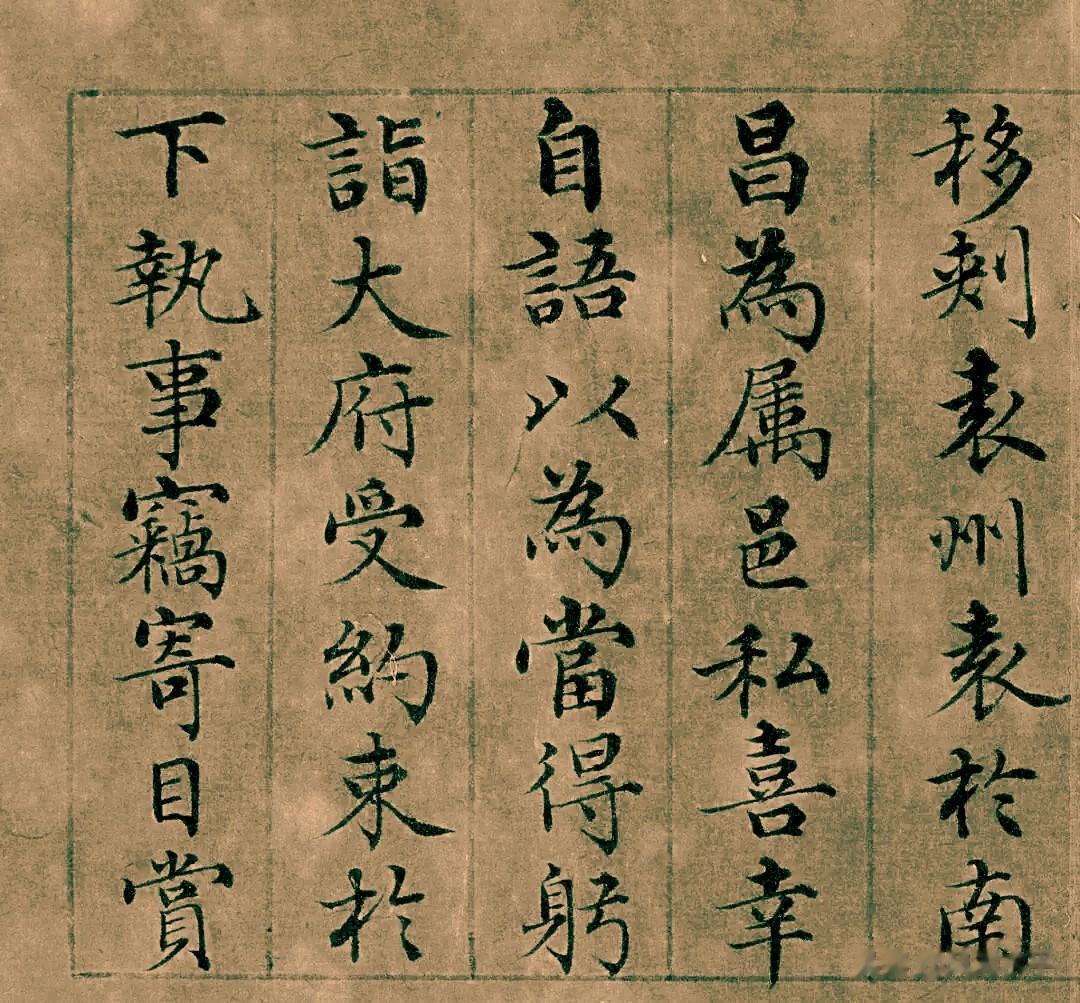 移刾袁州袁於南
昌為属邑私喜幸
自語以為當得躬
詣大府受約束於
下執事竊寄目賞